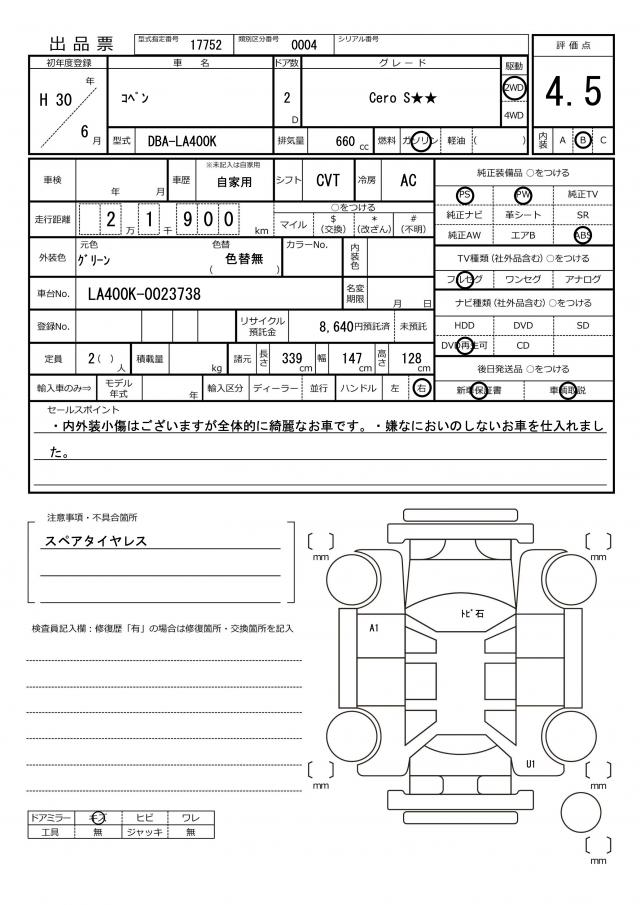 出品票 型式指定番号 17752 類別区分番号 0004 シリアル番号
初年度登録 車名 ドア数 グレード 駆動 評価点
H 30 年 6 月 コペン 2 D Cero S★★ 2WD 4WD 4.5
型式 DBA-LA400K 排気量 660 cc 燃料 ガソリン 軽油 ( ) 内装 A B C
車検 年 月 車歴 ※未記入は自家用 自家用 シフト CVT 冷房 AC
走行距離 2 万 1 千 9 0 0 km ○をつける マイル $ (交換) * (改ざん) # (不明)
外装色 元色 グリーン 色替 色替無 ( ) カラーNo. 内装色
車台No. LA400K-0023738 名変期限 月 日
登録No. リサイクル預託金 8,640 円預託済 未預託
定員 2 ( ) 人 積載量 kg 諸元 長さ 339 cm 幅 147 cm 高さ 128 cm
輸入車のみ⇒ モデル年式 年 輸入区分 ディーラー 並行 ハンドル 左 右
純正装備品 ○をつける
PS PW 純正TV
純正ナビ 革シート SR
純正AW エアB ABS
TV種類 (社外品含む) ○をつける
フルセグ ワンセグ アナログ
ナビ種類 (社外品含む) ○をつける
HDD DVD SD
DVD再生可 CD
後日発送品 ○をつける
新車保証書 車輌取説
セールスポイント
・内外装小傷はございますが全体的に綺麗なお車です。・嫌なにおいのしないお車を仕入れまし
た。
注意事項・不具合箇所
スペアタイヤレス
検査員記入欄：修復歴「有」の場合は修復箇所・交換箇所を記入
ドアミラー キズ ヒビ ワレ
工具 無 ジャッキ 無
mm
mm
トビ石
A1
U1
mm
mm
mm